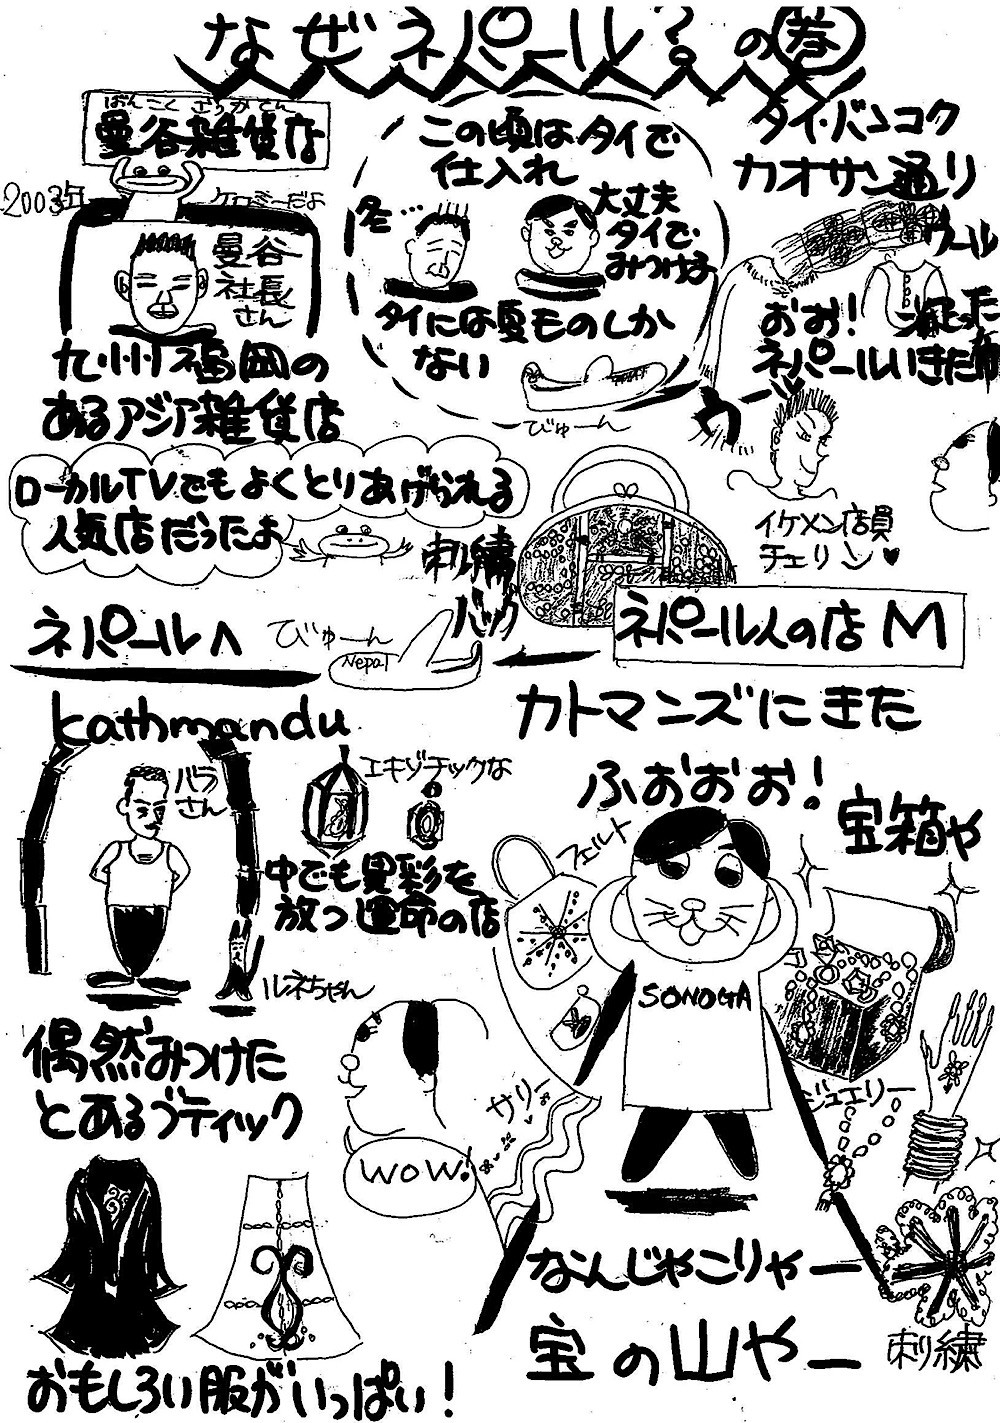 なぜネパール?の巻
ばんこくざっかてん
曼谷雑貨店
2003年
ケロミーだよ
曼谷
社長
さん
九州福岡の
あるアジア雑貨店
この頃はタイで
仕入れ
冬…
大丈夫
タイで
みつける
タイには夏ものしか
ない
びゅーん
タイ・バンコク
カオサン通り
ウール
おお!
ネパールいきた
ローカルTVでもよくとりあげられる
人気店だったよ
刺繍
バック
イケメン店員
チェリン♥
ネパール人の店M
ネパールへ
びゅーん
Nepal
kathmandu
カトマンズにきた
バラ
さん
エキゾチックな
中でも異彩を
放つ運命の店
ルネちゃん
ふおおお!
宝箱や
フェルト
SONOGA
偶然みつけた
とあるブティック
WOW!
サリー
ジュエリー
なんじゃこりゃー
宝の山やー
刺繍
おもしろい服がいっぱい!